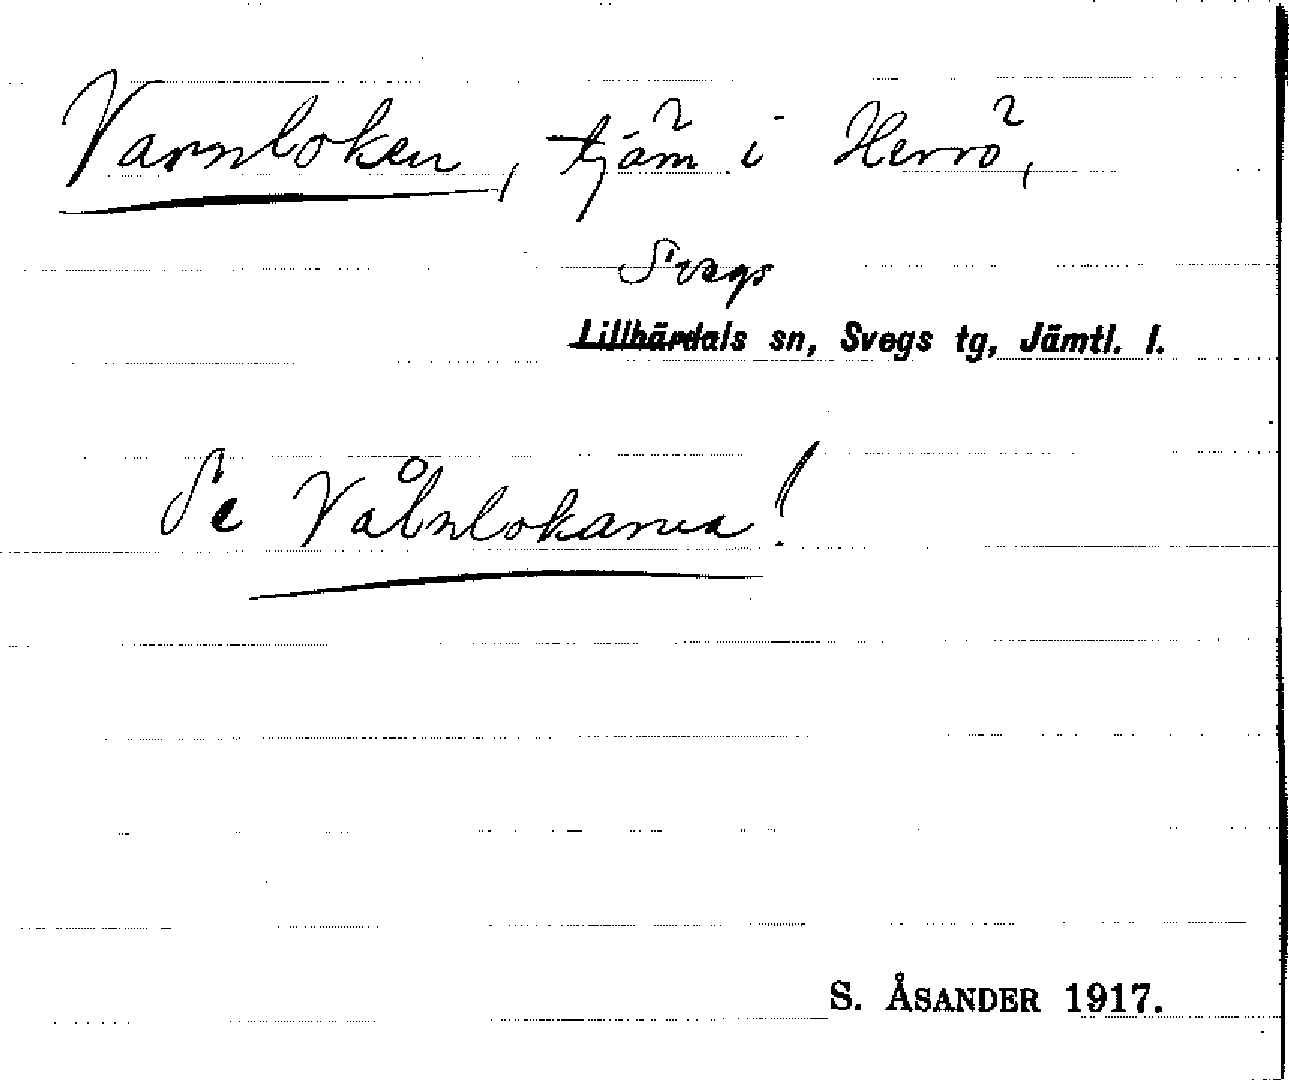 Varnloken, tjärn i Herrö,
Svegs
Lillhärdals sn, Svegs tg, Jämtl. l.
Se Vålnlokarna!
S. ÅSANDER 1917.